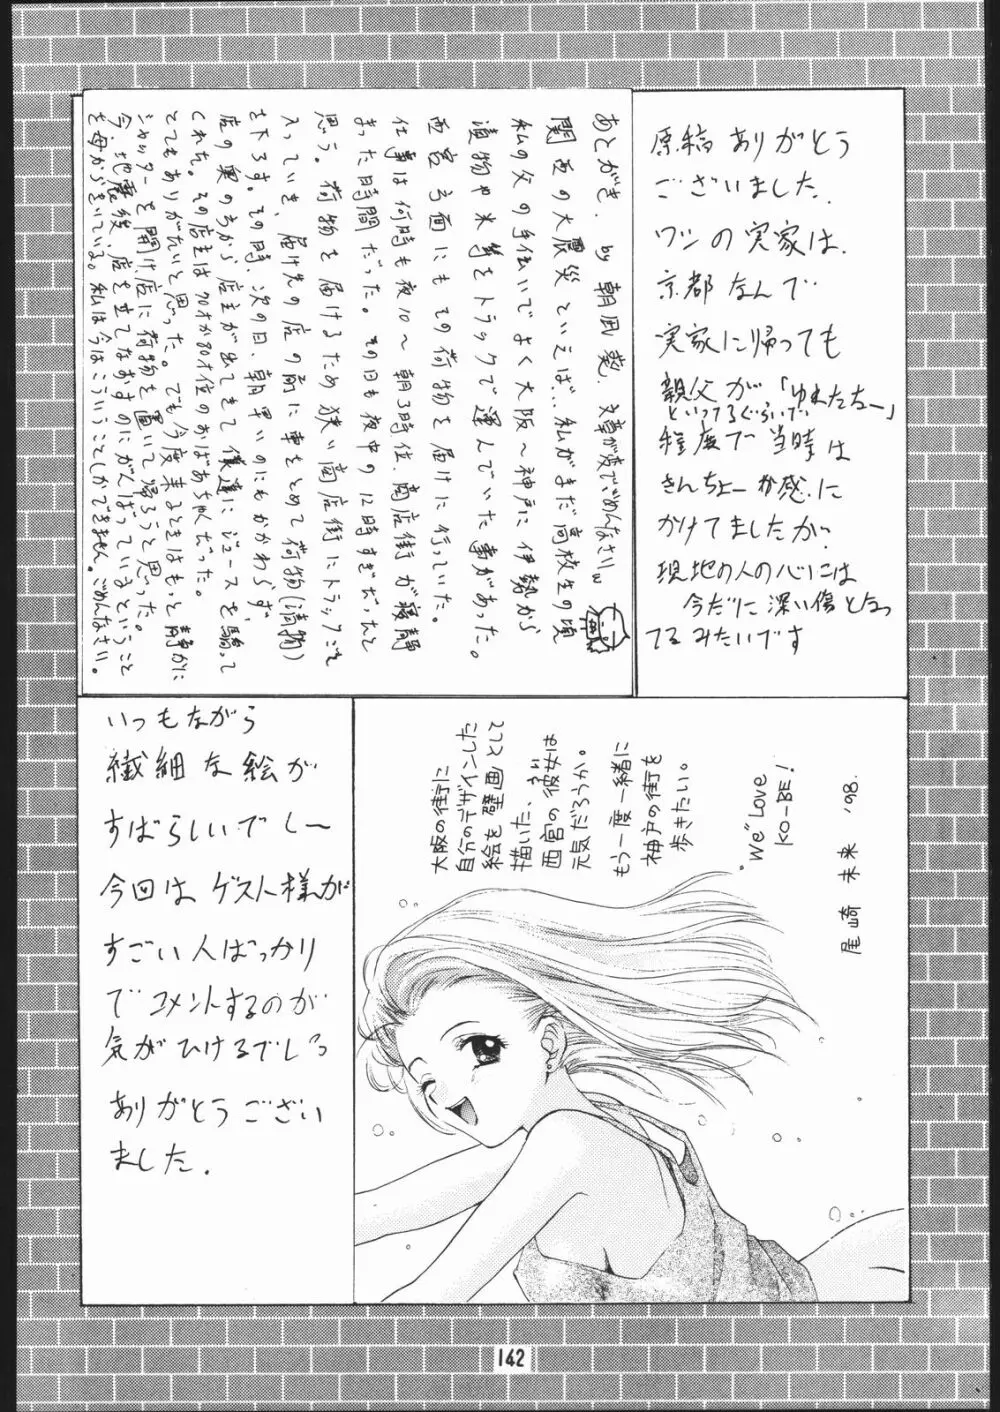 あとがき. by 朝凪 葵. 文章が変でごめんなさいw
関西の大震災といえば… 私がまだ高校生の頃
私の父の手伝いでよく大阪〜神戸に伊勢から
漬物や米等をトラックで運んでいた事があった。
西宮方面にもその荷物を届けに行っていた。
仕事は何時も夜10〜朝3時位、商店街が寝静
まった時間だった。その日も夜中の12時すぎだったと
思う。荷物を届けるため狭い商店街にトラックごと
入っていき、届け先の店の前に車をとめて荷物(漬物)
を下ろす。その時、次の日、朝早いのにもかかわらず、
店の奥の方から店主が出てきて僕達にジュースを驕って
くれた。その店主は70才か80才位のおばあちゃんだった。
とてもありがたいと思った。でも今度来るときはもっと静かに
シャッターを開け店に荷物を置いて帰ろうと思った。
今、地震後、店を立てなおすのにがんばっているということ
を母からきいている。私は今はこういうことしかできません。ごめんなさい。
原稿ありがとう
ございました.
ワシの実家は.
京都なんで
実家に帰っても
親父が「ゆれたなー」
といってるぐらいで
程度で当時は
きんちょー感に
かけてましたが.
現地の人の心には
今だに深い傷となっ
てるみたいです
いつもながら
繊細な絵が
すばらしいでしー
今回はゲスト様が
すごい人ばっかり
でコメントするのが
気がひけるでしつ
ありがとうござい
ました.
"We" Love
KO-BE!
もう一度一緒に
神戸の街を
歩きたい。
大阪の街に
自分のデザインした
絵を壁画として
描いた、
西宮の彼女は
元気だろうか。
尾崎 未来 '98.
142